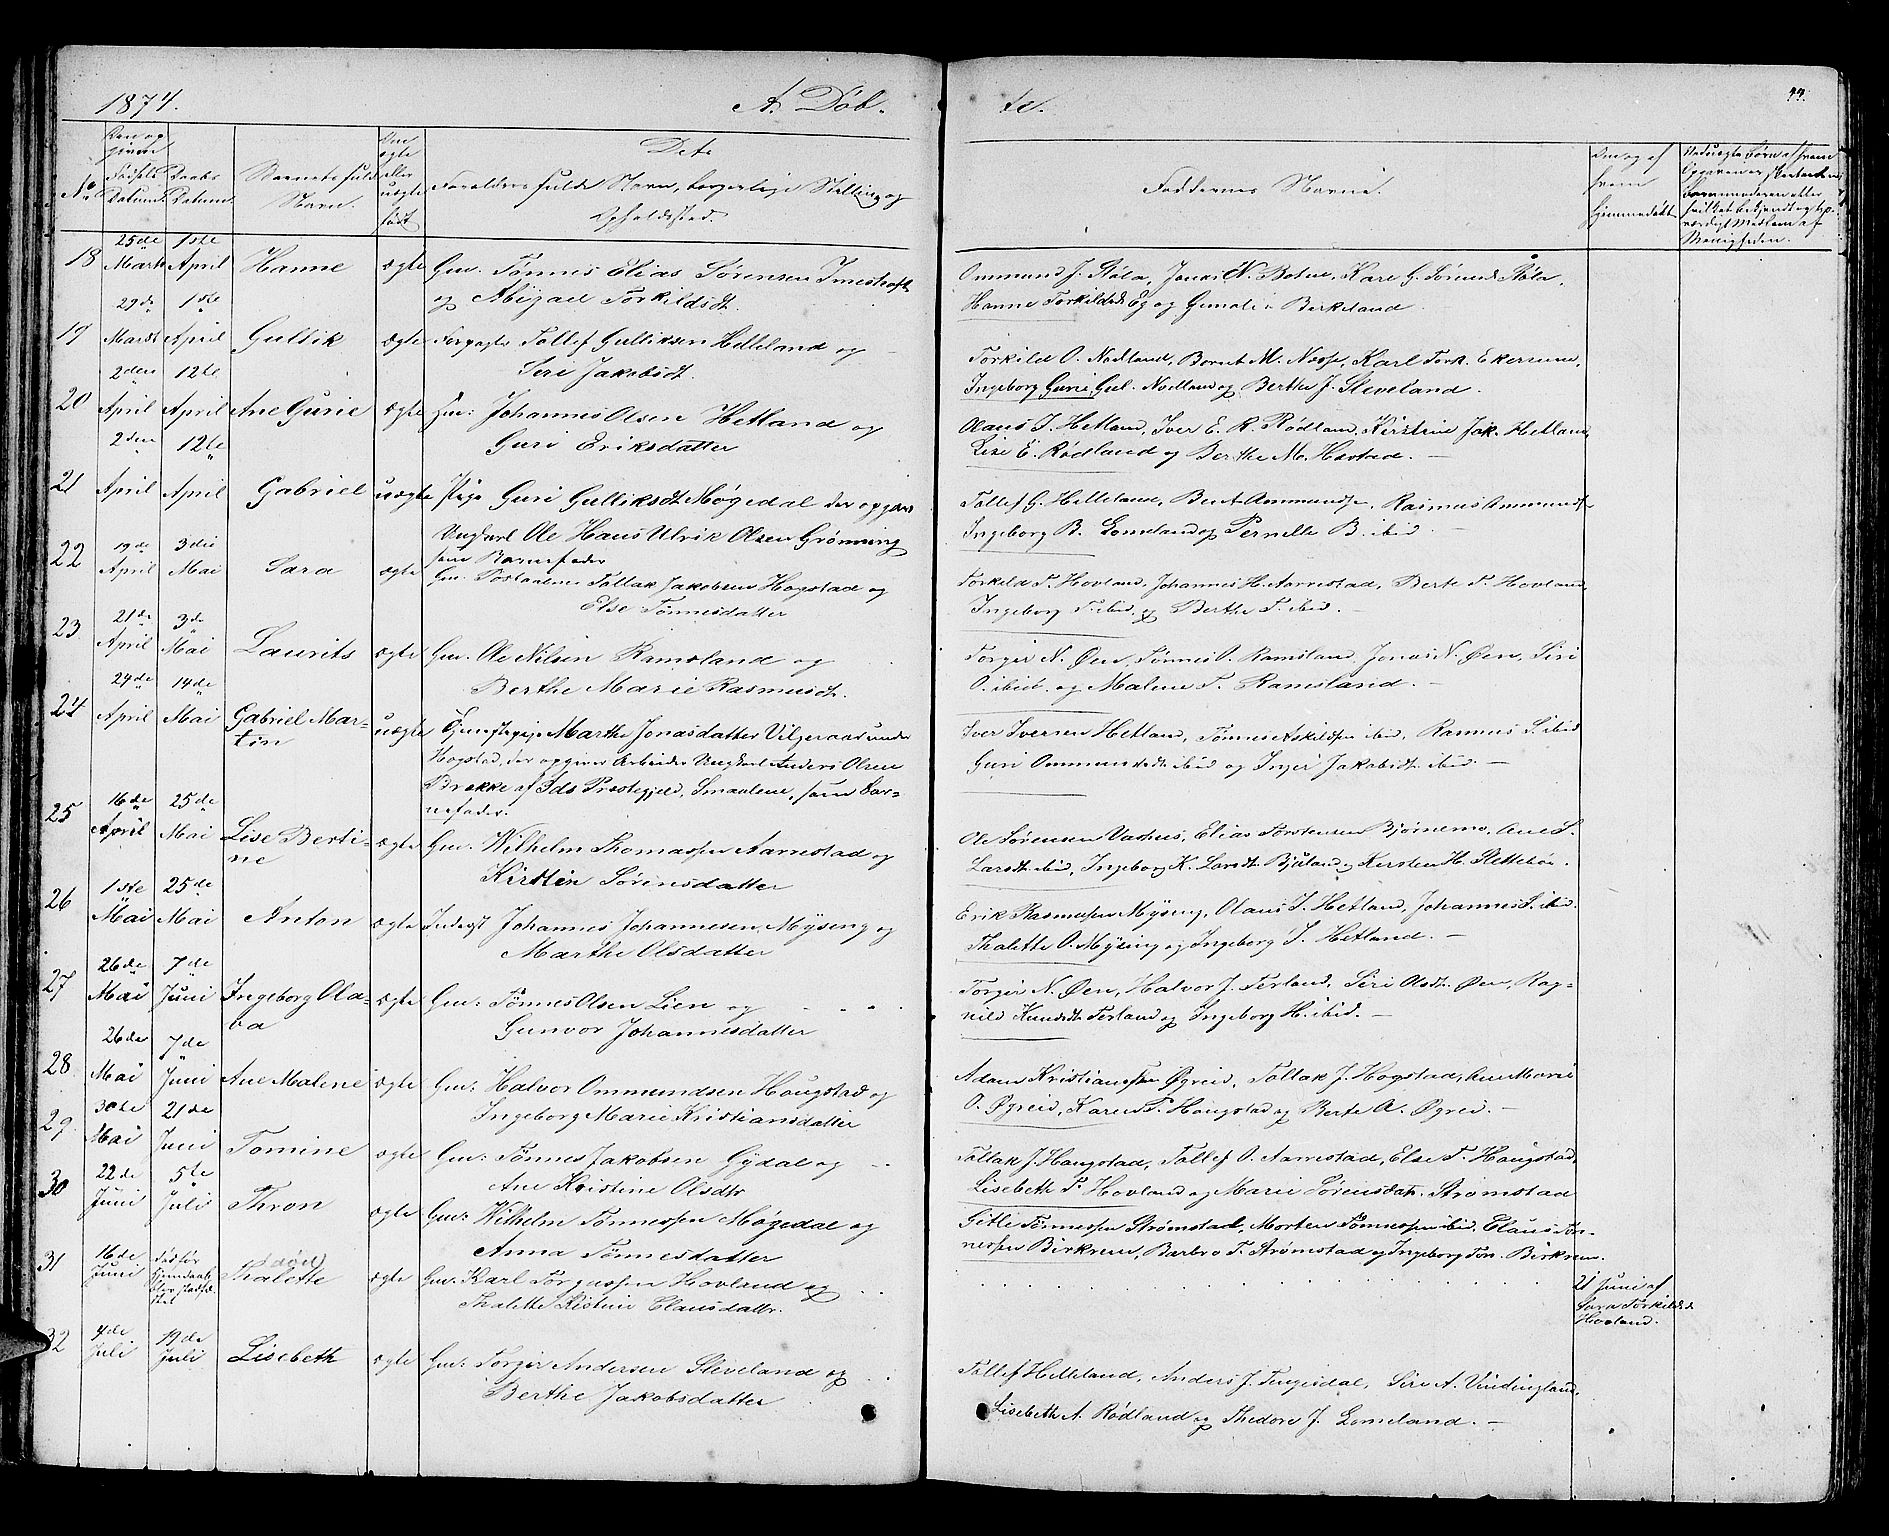 1874.
A. Døb-
te.
44.
No
Den op
given
Fødsels
Datum.
Daabs
Datum.
Barnets fulde
Navn.
Om
ægte
eller
uægte
født
Dets
Forældres fulde Navn, borgerlige Stilling og
Opholdssted.
Faddernes Navne.
Om og af
hvem
hjemmedøbt
18
25de
Marts
1ste
April
Hanne
ægte
Gm. Tønnes Elias Sørensen
og Abigael Torkildsdt.
Ommund J. Støla, Jonas N. Botne, Kare G. Støla,
Hanne Torkildsdt Eg og Birkeland
19
29de
Marts
1ste
April
Gullik
ægte
Forpagter Tollef Gulliksen Helleland og
Seri Jakobsdt.
Torkild O. Nodland, Bernt M. Karl Tork. Ekersund,
Ingeborg Gurine Gul. Nodland og Berthe J. Sleveland.
20
2den
April
12te
April
Ane Gurie
ægte
Gm: Johannes Olsen Hetland og
Guri Eriksdatter
Olaus I. Hetland, Iver E. R. Rødland, Kirstine Jak. Hetland,
Lise E. Rødland og Berthe M. Hovstad.
21
2den
April
12te
April
Gabriel
uægte
Pige Guri Gulliksdt. Møgedal der opgiver
Ungkarl Ole Hans Ulrik Olsen Grønning
som Barnefader
Tollef G. Helleland, Bent Ommundsen, Rasmus Ommunds.
Ingeborg B. Lomeland og Pernille B. ibid.
22
19de
April
3die
Mai
Sara
ægte
Gm. Tollak Jakobsen Hogstad og
Else Tønnesdatter
Torkild T. Hovland, Johannes H. Aarrestad, Berte T. Hovland,
Ingeborg T. ibid. og Berthe T. ibid.
23
21de
April
3de
Mai
Laurits
ægte
Gm. Ole Nilsen Ramsland og
Berthe Marie Rasmusdt.
Torger N. Øen, Tønnes O. Ramsland, Jonas N. Øen, Siri
O. ibid. og Malene T. Ramsland.
24
24de
April
14de
Mai
Gabriel Mar-
tin
uægte
Tjenestepige Marthe Jonasdatter Vilgeraas under
Hogstad, der opgiver Arbeider Ungkarl Anders Olsen
Brække af Ids Præstegjeld, Smaalene, som Bar-
nefader.
Iver Iversen Hetland, Tønnes Askildsen ibid, Rasmus S. ibid
Guri Ommundsdt. ibid og Inger Jakobsdt. ibid.
25
16de
April
25de
Mai
Lise Berti-
ne
ægte
Gm: Wilhelm Thomassen Aarrestad og
Kirstin Sørensdatter
Ole Sørensen Vashus, Elias Torstensen Bjørnemo, Ane S.
Larsdt. ibid, Ingeborg K. Larsdt. Bjuland og Kirsten H. Slettebøe.
26
1ste
Mai
25de
Mai
Anton
ægte
Inderst Johannes Johannesen Mysing og
Marthe Olsdatter
Erik Rasmussen Mysing, Olaus I. Hetland, Johannes S. ibid.
Thalette O. Mysing og Ingeborg I. Hetland.
27
26de
Mai
7de
Juni
Ingeborg Ola-
va
ægte
Gm: Tønnes Olsen Lien og
Gunvor Johannesdatter
Torger N. Øen, Halvor J. Terland, Siri Olsdt. Øen, Rag-
nild Knudsdt. Terland og Ingeborg H. ibid.
28
26de
Mai
7de
Juni
Ane Malene
ægte
Gm: Halvor Ommundsen Hougstad og
Ingeborg Marie Kristiansdatter
Adam Kristiansen Øgreid, Tollak J. Hogstad, Ane Marie
O. Øgreid, Karen T. Hougstad og Berte A. Øgreid.
29.
30te
Mai
21de
Juni
Tomine
ægte
Gm: Tønnes Jakobsen Gydal og
Ane Kristine Olsdtr
Tollak J. Hougstad, Tollef O. Aarrestad, Else T. Hougstad,
Lisebeth T. Hovland og Marie Sørensdatr. Strømstad
30
22de
Juni
5te
Juli
Thron
ægte
Gm: Wilhelm Tønnessen Møgedal og
Anna Tønnesdatter
Gitle Tønnessen Strømstad, Morten Tønnessen ibid, Claus Tøn-
nessen Birkrem, Barbro T. Strømstad og Ingeborg Tøn. Birkrem.
31
16de
Juni
død før
Hjemdaab
blev stadfæ-
stet
død
Thalette
ægte
Gm: Karl Torgersen Hovland og
Thalette Kistine Clausdattr.
21 Juni af
Sara Torkildsd.
Hovland.
32
4de
Juli
19de
Juli
Lisebeth
ægte
Gm: Torger Andersen Sleveland og
Berthe Jakobsdatter
Tollef Helleland, Anders J. Tengesdal, Sire A. Vindingland,
Lisebeth A. Rødland og Thedore J. Lomeland.